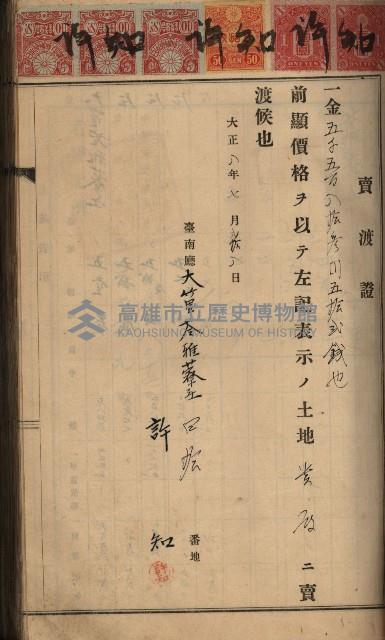 許知 許知 許知
賣渡證
一金五千五百八拾參円五拾弐錢也
前顯價格ヲ以テ左記表示ノ土地 貴殿 ニ賣
渡候也
大正八年七月 拾八日
臺南廳大竹里大雅藔庄 口 番地
許知
高雄市立歷史博物館
KAOHSIUNG MUSEUM OF HISTORY